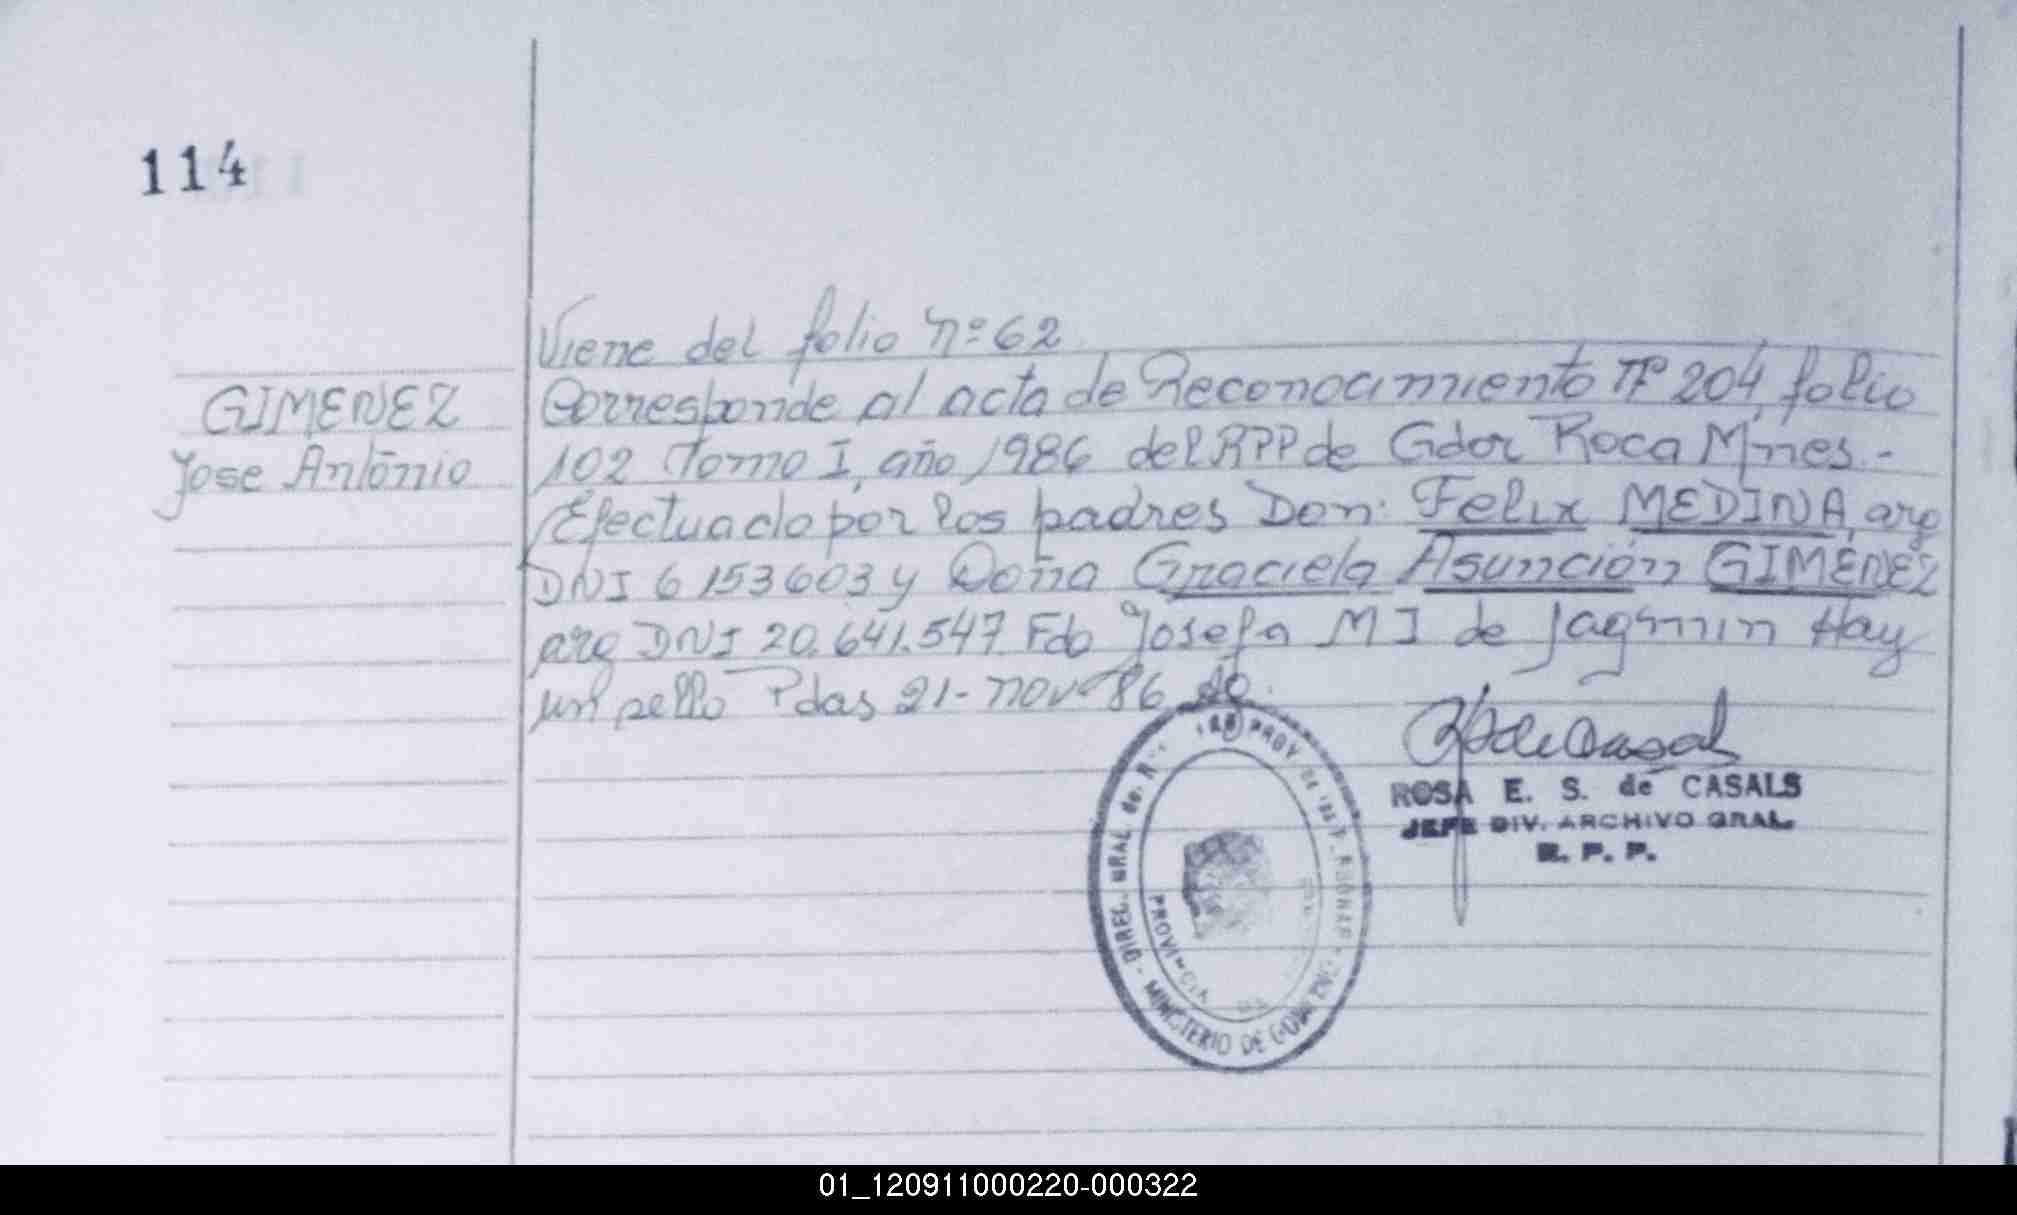 114
Viene del folio Nº 62
GIMENEZ
Jose Antonio
Corresponde al acta de Reconocimiento Nº 204, folio
102 Tomo I, año 1986 del RPP de Gdor Roca Mnes.-
Efectuado por los padres Don: Felix MEDINA, arg
DNI 6 153603 y Doña Graciela Asunción GIMENEZ
arg DNI 20.641.547 Fdo Josefa M I de Hay
un sello Pdas 21-nov-86
ROSA E. S. de CASALS
JEFE DIV. ARCHIVO GRAL.
R. P. P.
DIREC. GRAL de PROV DE LAS P.
MINISTERIO DE GOBIERNO
PROVINCIA
01_120911000220-000322